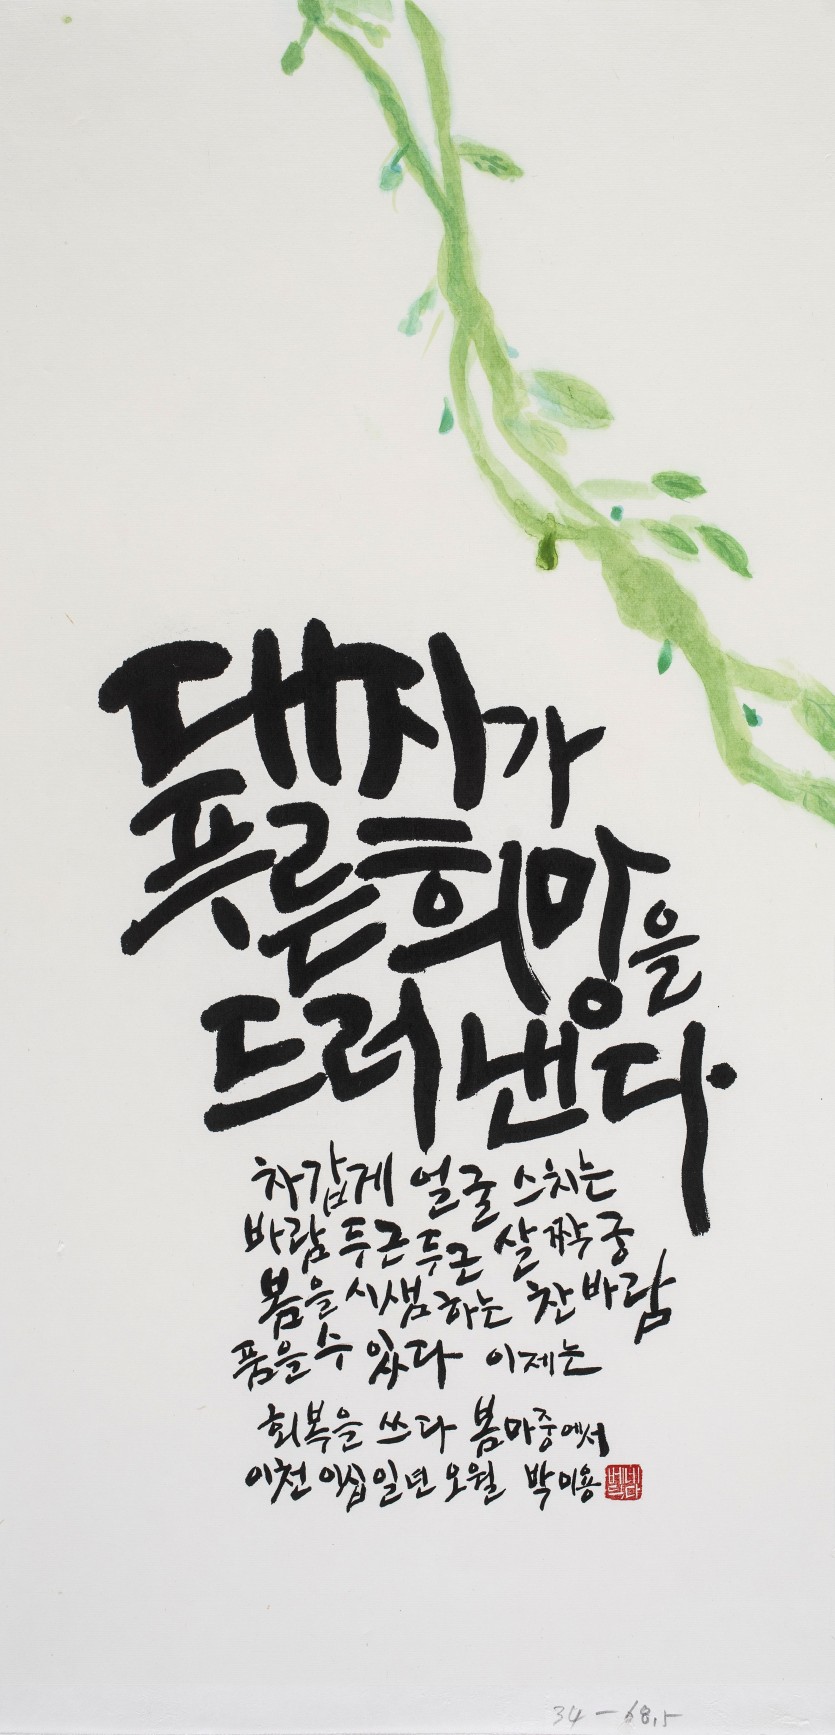 대자가
푸른 희망을
드러낸다.
차갑게 얼굴 스치는
바람 두근두근 살짝궁
봄을 시샘하는 찬바람
품을 수 있다 이제는
회복을 쓰다 봄마중에서
이천 이십일년 오월 박미용
34-68,5